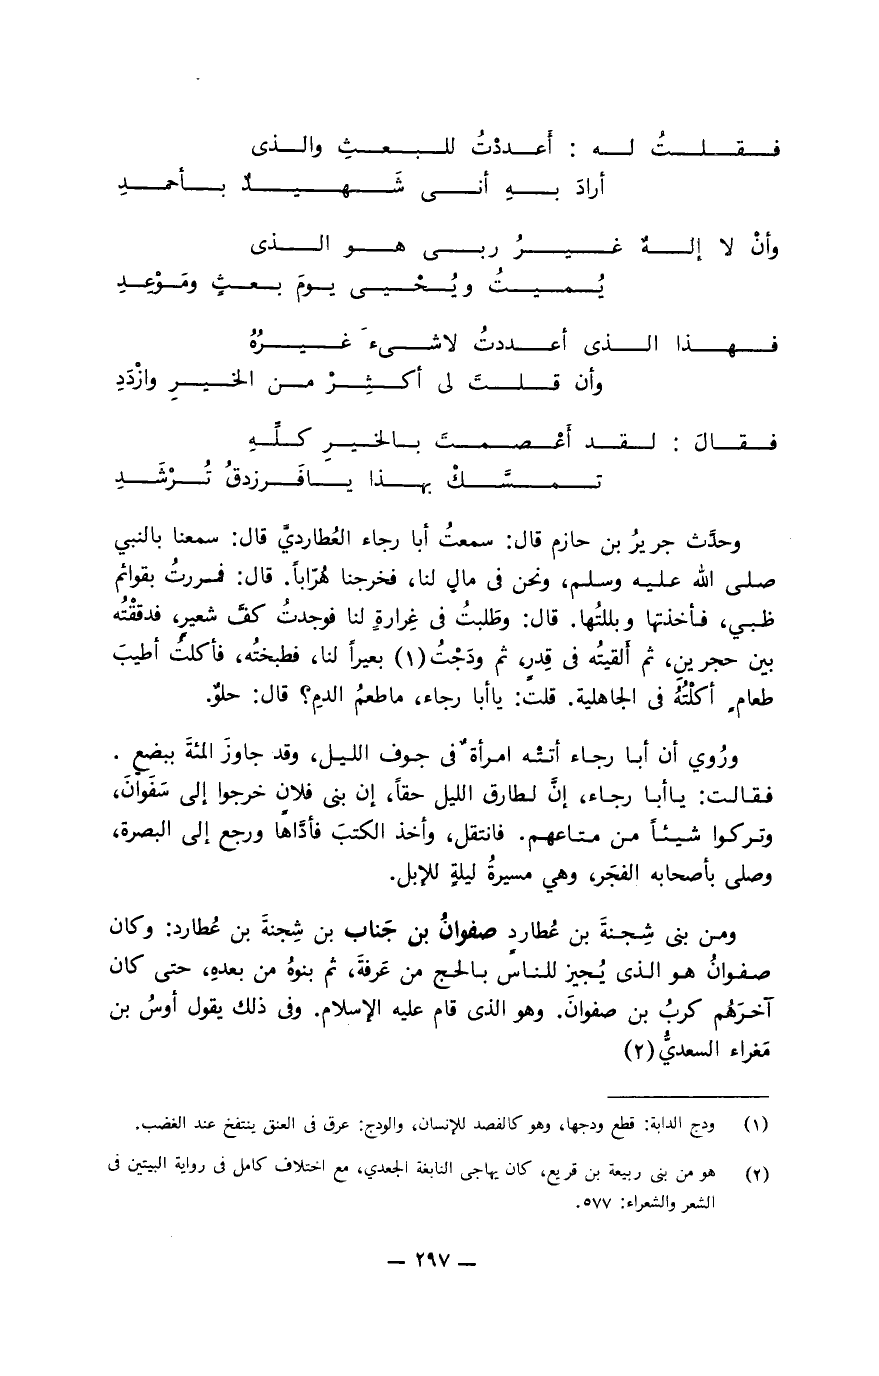 فـقـلـتُ لـه : أَعـددْتُ للـبـعـثِ والـذى
أرادَ بـهِ أنـى شَـهـيـدٌ بـأحمـدِ
وأنْ لا إلـهٌ غـيـرُ ربـى هـو الـذى
يُـمـيـتُ ويُـحْـيـى يـومَ بـعـثٍ ومَـوْعِـدِ
فـهـذا الـذى أعـددتُ لاشـىءَ غـيـرُهُ
وأن قـلـتَ لى أكـثِـرْ مـن الخـيـرِ وازْدَدِ
فـقـالَ : لـقـد أَعْـصـمـتَ بـالخـيـرِ كـلِّـهِ
تـمـسَّـكْ بهـذا يـافَـرزدقُ تُـرْشَـدِ
وحدَّث جريرُ بن حازم قال: سمعتُ أبا رجاء العُطارديَّ قال: سمعنا بالنبي
صلى الله عليه وسلم، ونحن فى مالٍ لنا، فخرجنا هُرّاباً. قال: فمررتُ بقوائم
ظبي، فأخذتها وبللتُها. قال: وطَلبتُ فى غِرارةٍ لنا فوجدتُ كفَّ شعيرٍ، فدققْتُه
بين حجرين، ثم ألقيتُه فى قِدرٍ، ثم ودَجْتُ (١) بعيراً لنا، فطبختُه، فأكلتُ أطيبَ
طعامٍ أكلْتُهُ فى الجاهلية. قلت: ياأبا رجاء، ماطعمُ الدم؟ قال: حلوٌ.
ورُوي أن أبا رجاء أتتْه امرأةٌ فى جوف الليل، وقد جاوزَ المئةَ ببضعٍ .
فقالت: ياأبا رجاء، إنَّ لطارق الليل حقاً، إن بنى فلانٍ خرجوا إلى سَفَوانَ،
وتركوا شيئاً من متاعهم. فانتقل، وأخذ الكتبَ فأدَّاها ورجع إلى البصرة،
وصلى بأصحابه الفجَر، وهي مسيرةُ ليلةٍ للإبل.
ومن بنى شِجنةَ بن عُطاردٍ صفوانُ بن جَناب بن شِجنةَ بن عُطارد: وكان
صفوانُ هو الذى يُجيز للناس بالحج من عَرفةَ، ثم بنوهُ من بعدهِ، حتى كان
آخرَهُم كربُ بن صفوانَ. وهو الذى قام عليه الإسلام. وفى ذلك يقول أوسُ بن
مَغراء السعديُّ (٢)
(١) ودج الدابة: قطع ودجها، وهو كالفصد للإنسان، والودج: عرق فى العنق ينتفخ عند الغضب.
(٢) هو من بنى ربيعة بن قريع، كان يهاجى النابغة الجعدي، مع اختلاف كامل فى رواية البيتين فى
الشعر والشعراء: ٥٧٧.
— ٢٩٧ —